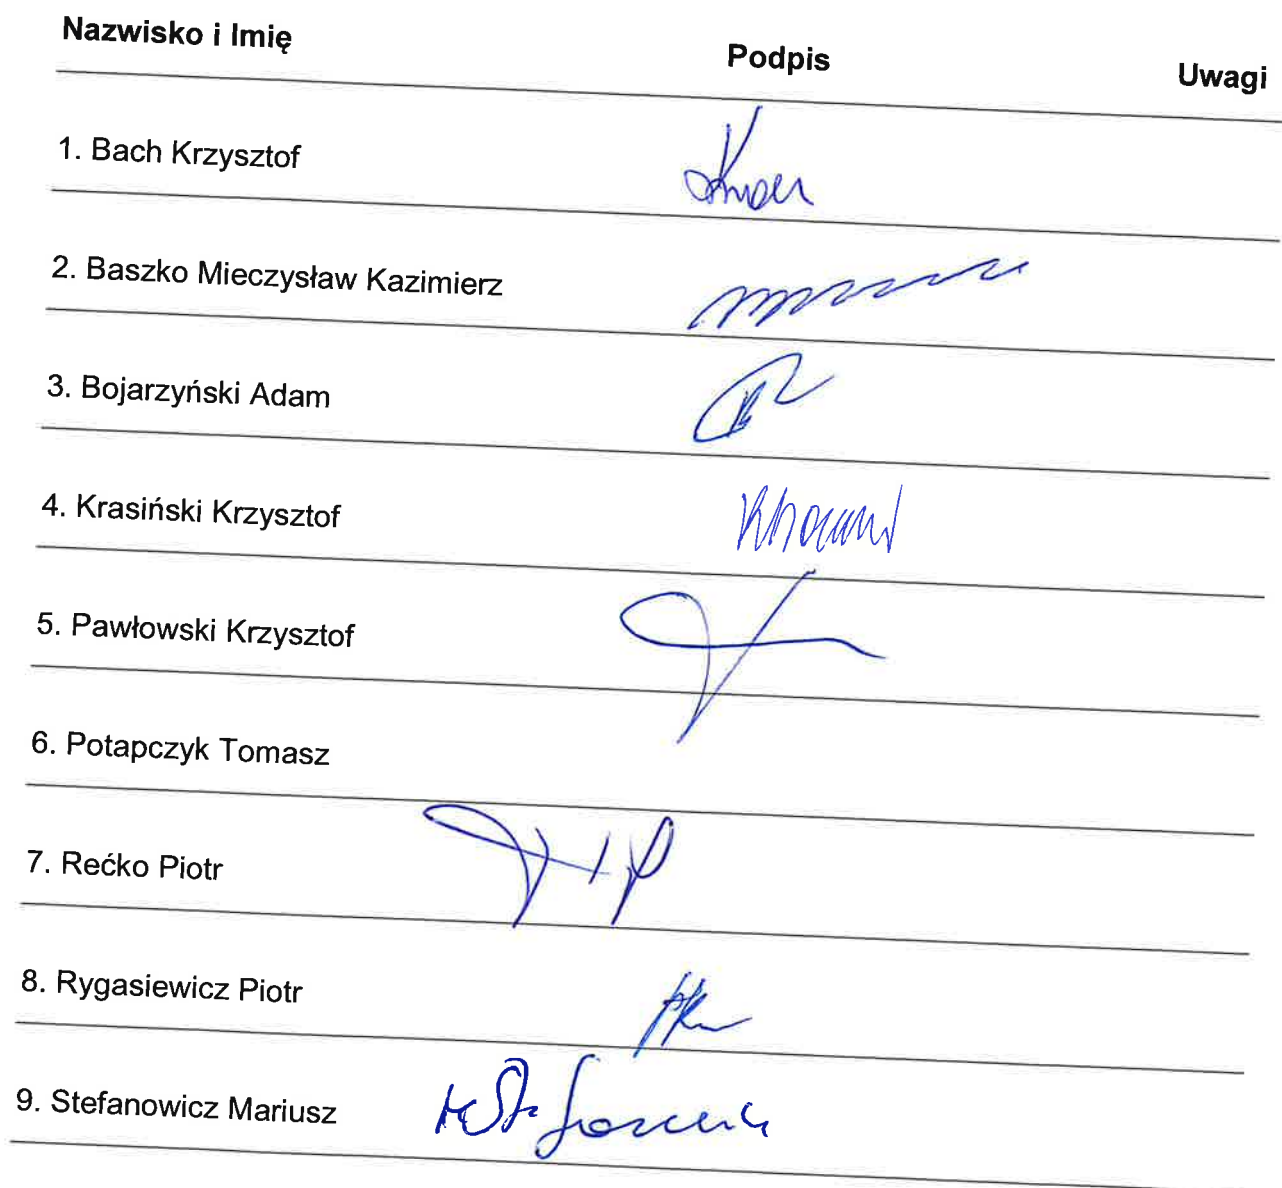 Nazwisko i Imię Podpis Uwagi
1. Bach Krzysztof
2. Baszko Mieczysław Kazimierz
3. Bojarzyński Adam
4. Krasiński Krzysztof
5. Pawłowski Krzysztof
6. Potapczyk Tomasz
7. Rećko Piotr
8. Rygasiewicz Piotr
9. Stefanowicz Mariusz